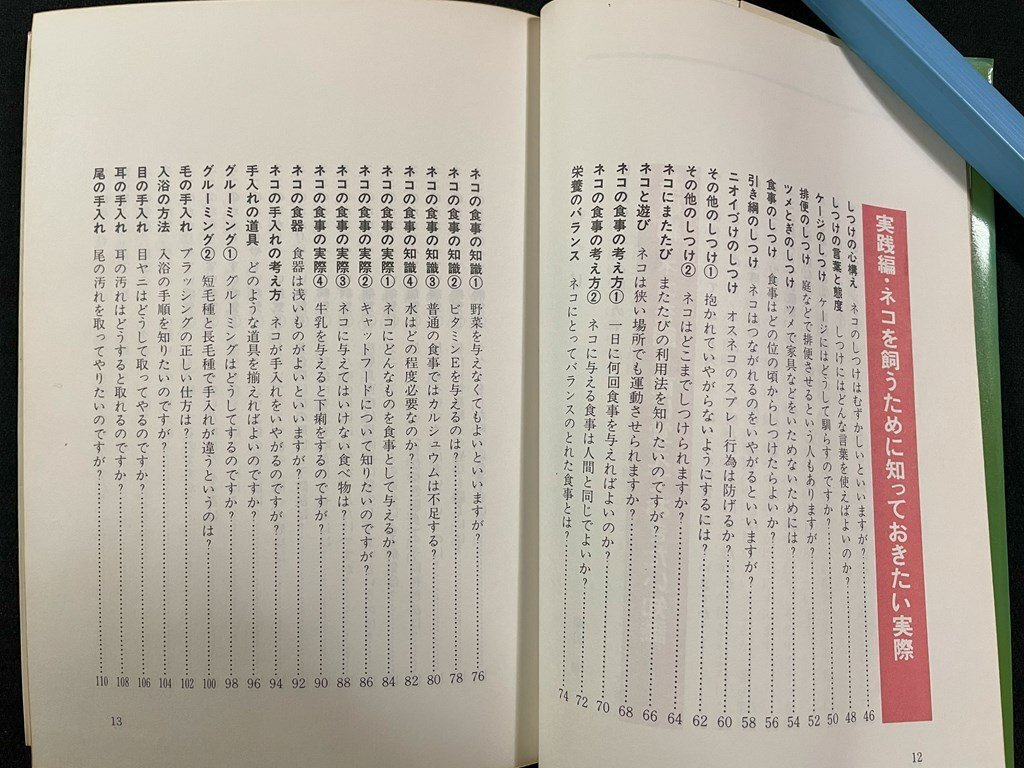 実践編・ネコを飼うために知っておきたい実際
しつけの心構え ネコのしつけはむずかしいといいますが？ 46
しつけの言葉と態度 しつけにはどんな言葉を使えばよいのか？ 48
ケージのしつけ ケージにはどうして馴らすのですか？ 50
排便のしつけ 庭などで排便させるという人もありますが？ 52
ツメとぎのしつけ ツメで家具などをいためないためには？ 54
食事のしつけ 食事はどの位の頃からしつけたらよいか？ 56
引き綱のしつけ ネコはつながれるのをいやがるといいますが？ 58
ニオイづけのしつけ オスネコのスプレー行為は防げるか？ 60
その他のしつけ① 抱かれていやがらないようにするには？ 62
その他のしつけ② ネコはどこまでしつけられますか？ 64
ネコにまたたび またたびの利用法を知りたいのですが？ 66
ネコと遊び ネコは狭い場所でも運動させられますか？ 68
ネコの食事の考え方① 一日に何回食事を与えればよいのか？ 70
ネコの食事の考え方② ネコに与える食事は人間と同じでよいか？ 72
栄養のバランス ネコにとってバランスのとれた食事とは？ 74
12
ネコの食事の知識① 野菜を与えなくてもよいといいますが？ 76
ネコの食事の知識② ビタミンEを与えるのは？ 78
ネコの食事の知識③ 普通の食事ではカルシュウムは不足する？ 80
ネコの食事の知識④ 水はどの程度必要なのか？ 82
ネコの食事の実際① ネコにどんなものを食事として与えるか？ 84
ネコの食事の実際② キャットフードについて知りたいのですが？ 86
ネコの食事の実際③ ネコに与えてはいけない食べ物は？ 88
ネコの食事の実際④ 牛乳を与えると下痢をするのですが？ 90
ネコの食器 食器は浅いものがよいといいますが？ 92
ネコの手入れの考え方 ネコが手入れをいやがるのですが？ 94
手入れの道具 どのような道具を揃えればよいのですか？ 96
グルーミング① グルーミングはどうしてするのですか？ 98
グルーミング② 短毛種と長毛種で手入れが違うというのは？ 100
毛の手入れ ブラッシングの正しい仕方は？ 102
入浴の方法 入浴の手順を知りたいのですが？ 104
目の手入れ 目ヤニはどうして取ってやるのですか？ 106
耳の手入れ 耳の汚れはどうすると取れるのですか？ 108
尾の手入れ 尾の汚れを取ってやりたいのですが？ 110
13